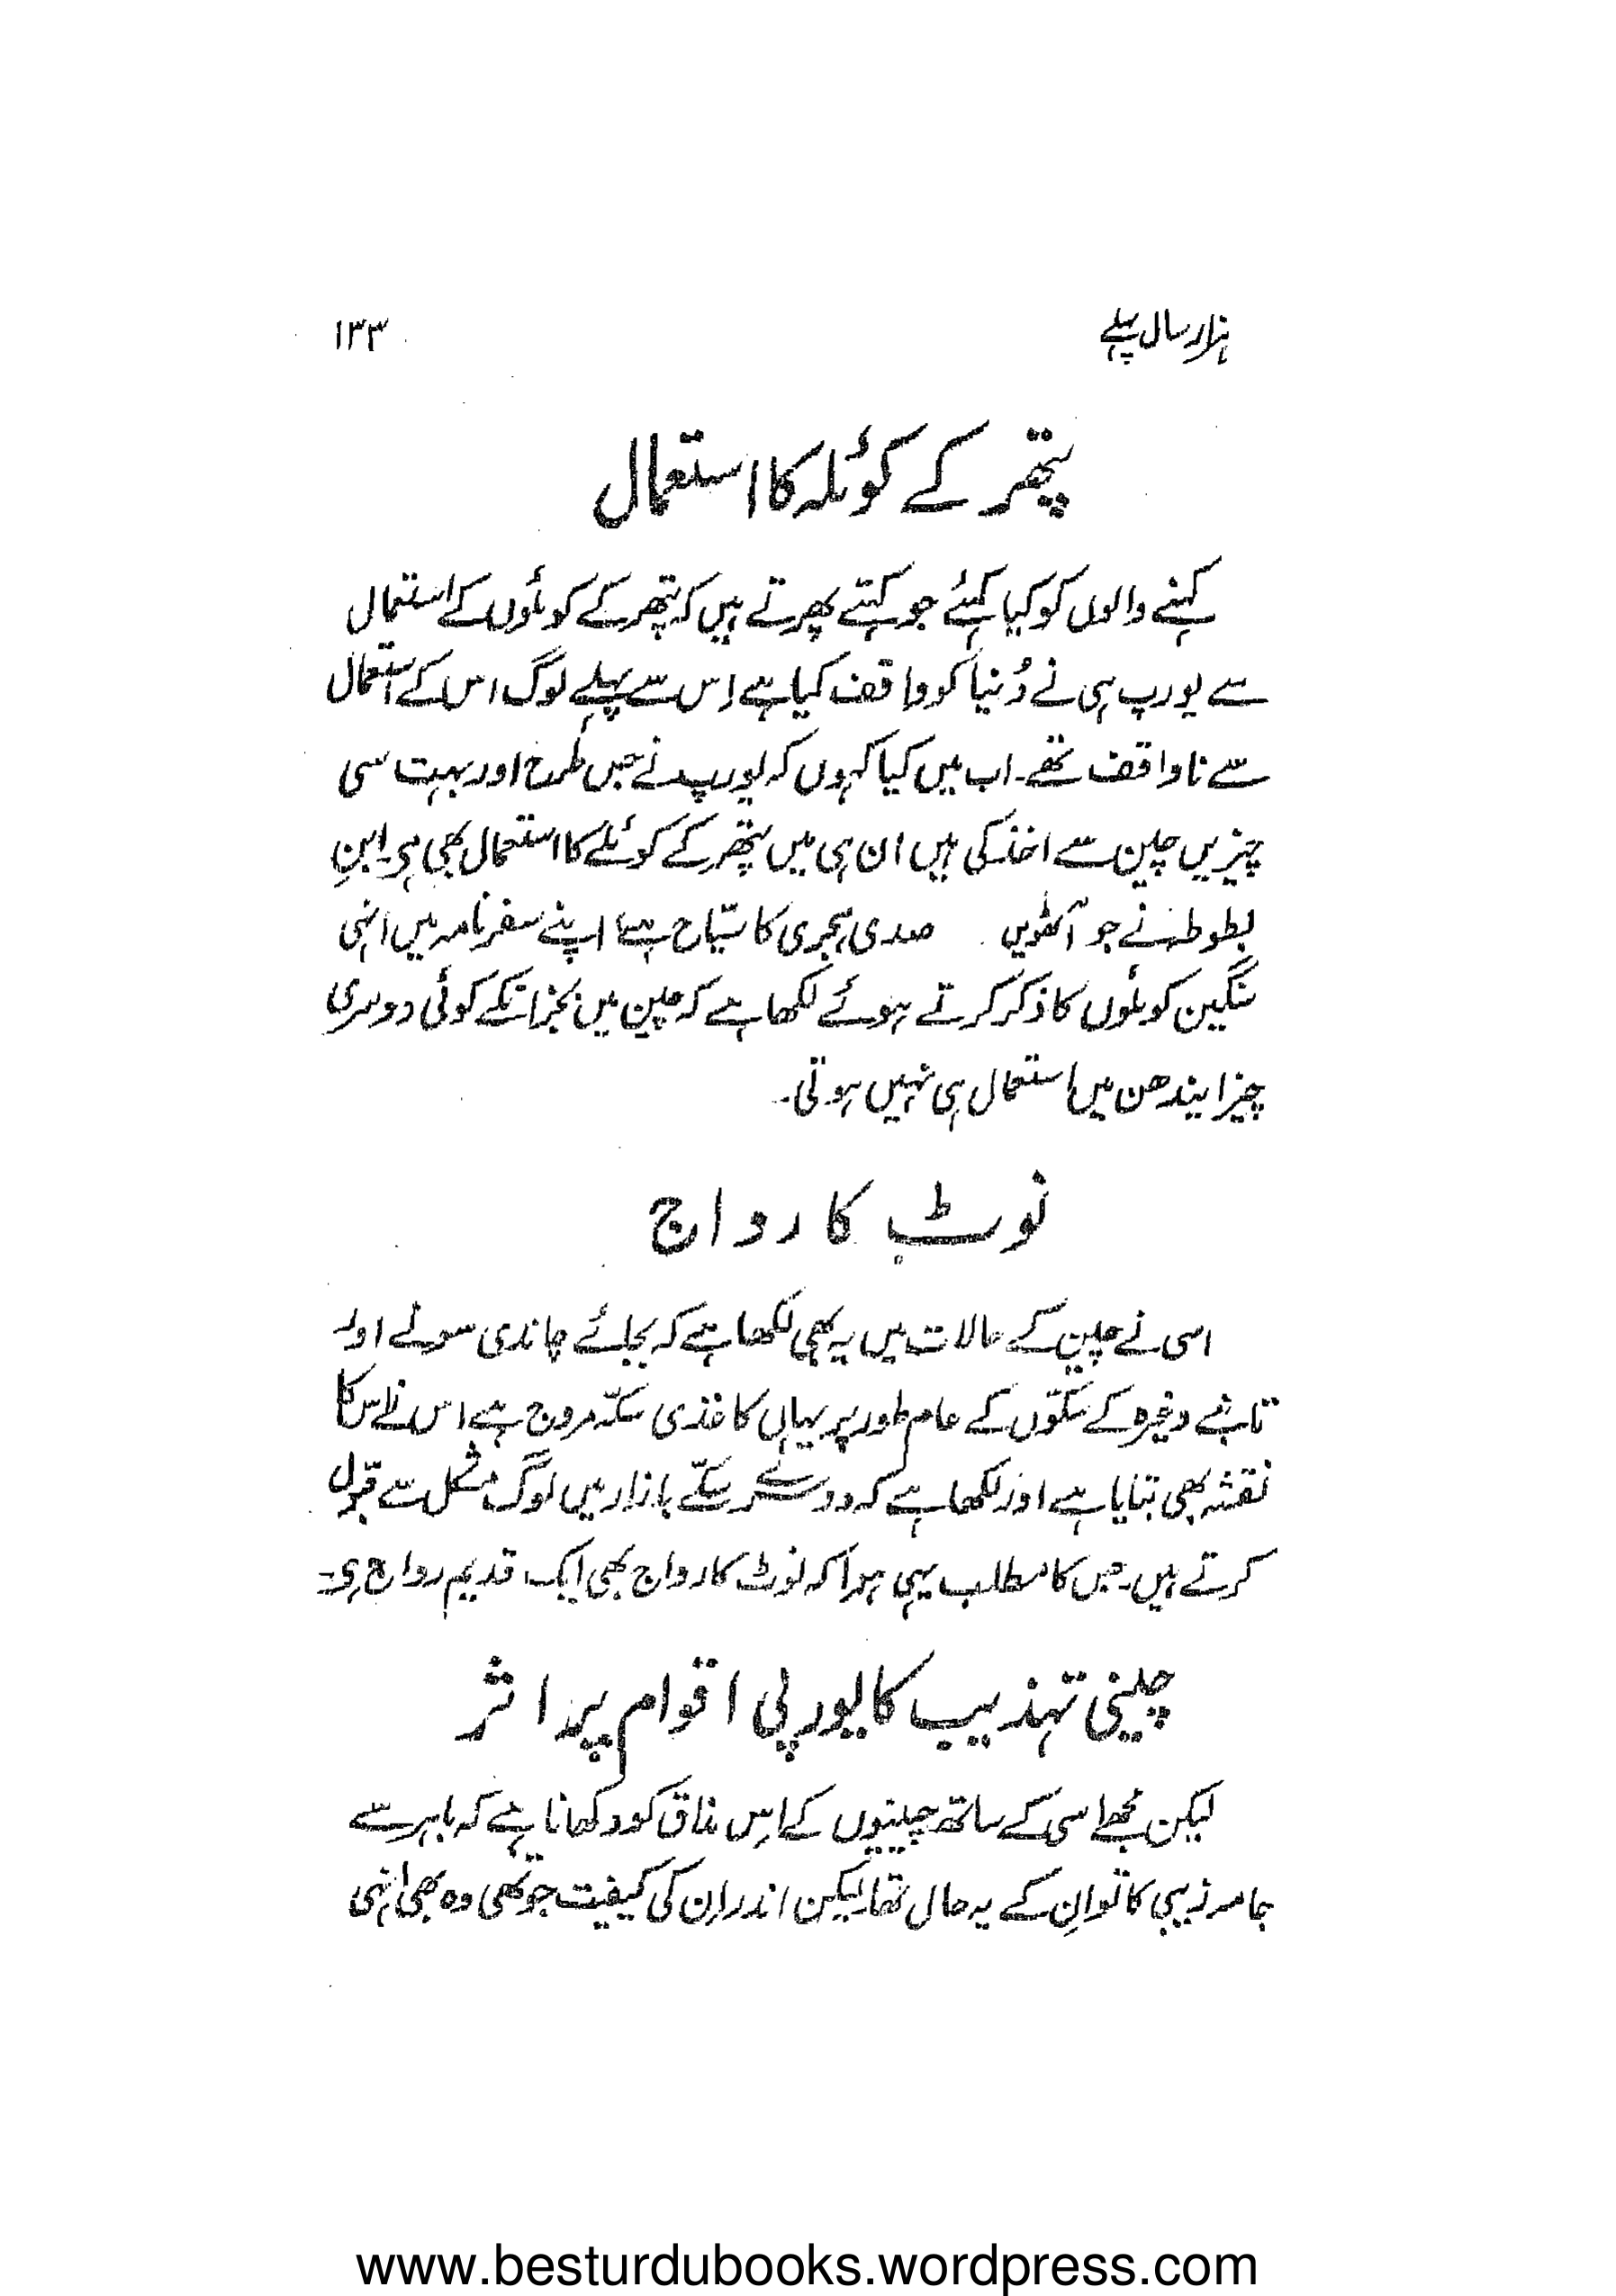 ہزار سال پہلے
۱۳۳
پتھر کے کوئلہ کا استعمال
کہنے والوں کو کیا کہئے جو کہتے پھرتے ہیں کہ پتھر کے کوئلوں کے استعمال
سے یورپ ہی نے دُنیا کو واقف کیا ہے اِس سے پہلے لوگ اس کے استعمال
سے ناواقف تھے۔ اب میں کیا کہوں کہ یورپ نے جس طرح اور بہت سی
چیزیں چین سے اخذ کی ہیں ان ہی میں پتھر کے کوئلے کا استعمال بھی ہی۔ ابنِ
بطوطہ نے جو آٹھویں صدی ہجری کا سیّاح ہے اپنے سفرنامہ میں انہی
سنگین کوئلوں کا ذکر کرتے ہوئے لکھا ہے کہ چین میں بجز انکے کوئی دوسری
چیز ایندھن میں استعمال ہی نہیں ہوتی۔
نوٹ کا رواج
اسی نے چین کے حالات میں یہ بھی لکھا ہے کہ بجائے چاندی سونے اور
تانبے وغیرہ کے سکّوں کے عام طور پر یہاں کاغذی سکّہ مروج ہے اس نے اس کا
نقشہ بھی بتایا ہے اور لکھا ہے کہ دوسرے سکّے بازار میں لوگ مشکل سے قبول
کرتے ہیں۔ جس کا مطلب یہی ہوا کہ نوٹ کا رواج بھی ایک قدیم رواج ہی۔
چینی تہذیب کا یورپی اقوام پر اثر
لیکن مجھے اسی کے ساتھ چینیوں کے اِس مذاق کو دکھانا ہے کہ باہر سے
جامہ زیبی کا تو اِن کے یہ حال تھا لیکن اندر اِن کی کیفیت جو تھی وہ بھی انہی
www.besturdubooks.wordpress.com